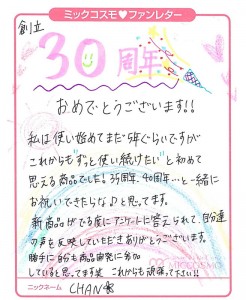 ミックコスモ♥ファンレター
創立
30周年
おめでとうございます!!
私は使い始めてまだ5年ぐらいですが
これからも"ずっと使い続けたい"と初めて
思える商品でした!35周年、40周年…と一緒に
お祝いできたらな♪と思ってます。
新商品がでる度にアンケートに答えられて、自分達
の声を反映していただきありがとうございます。
勝手に自分も商品開発に参加
していると思ってます笑 これからも頑張って下さい!!
ニックネーム CHAN